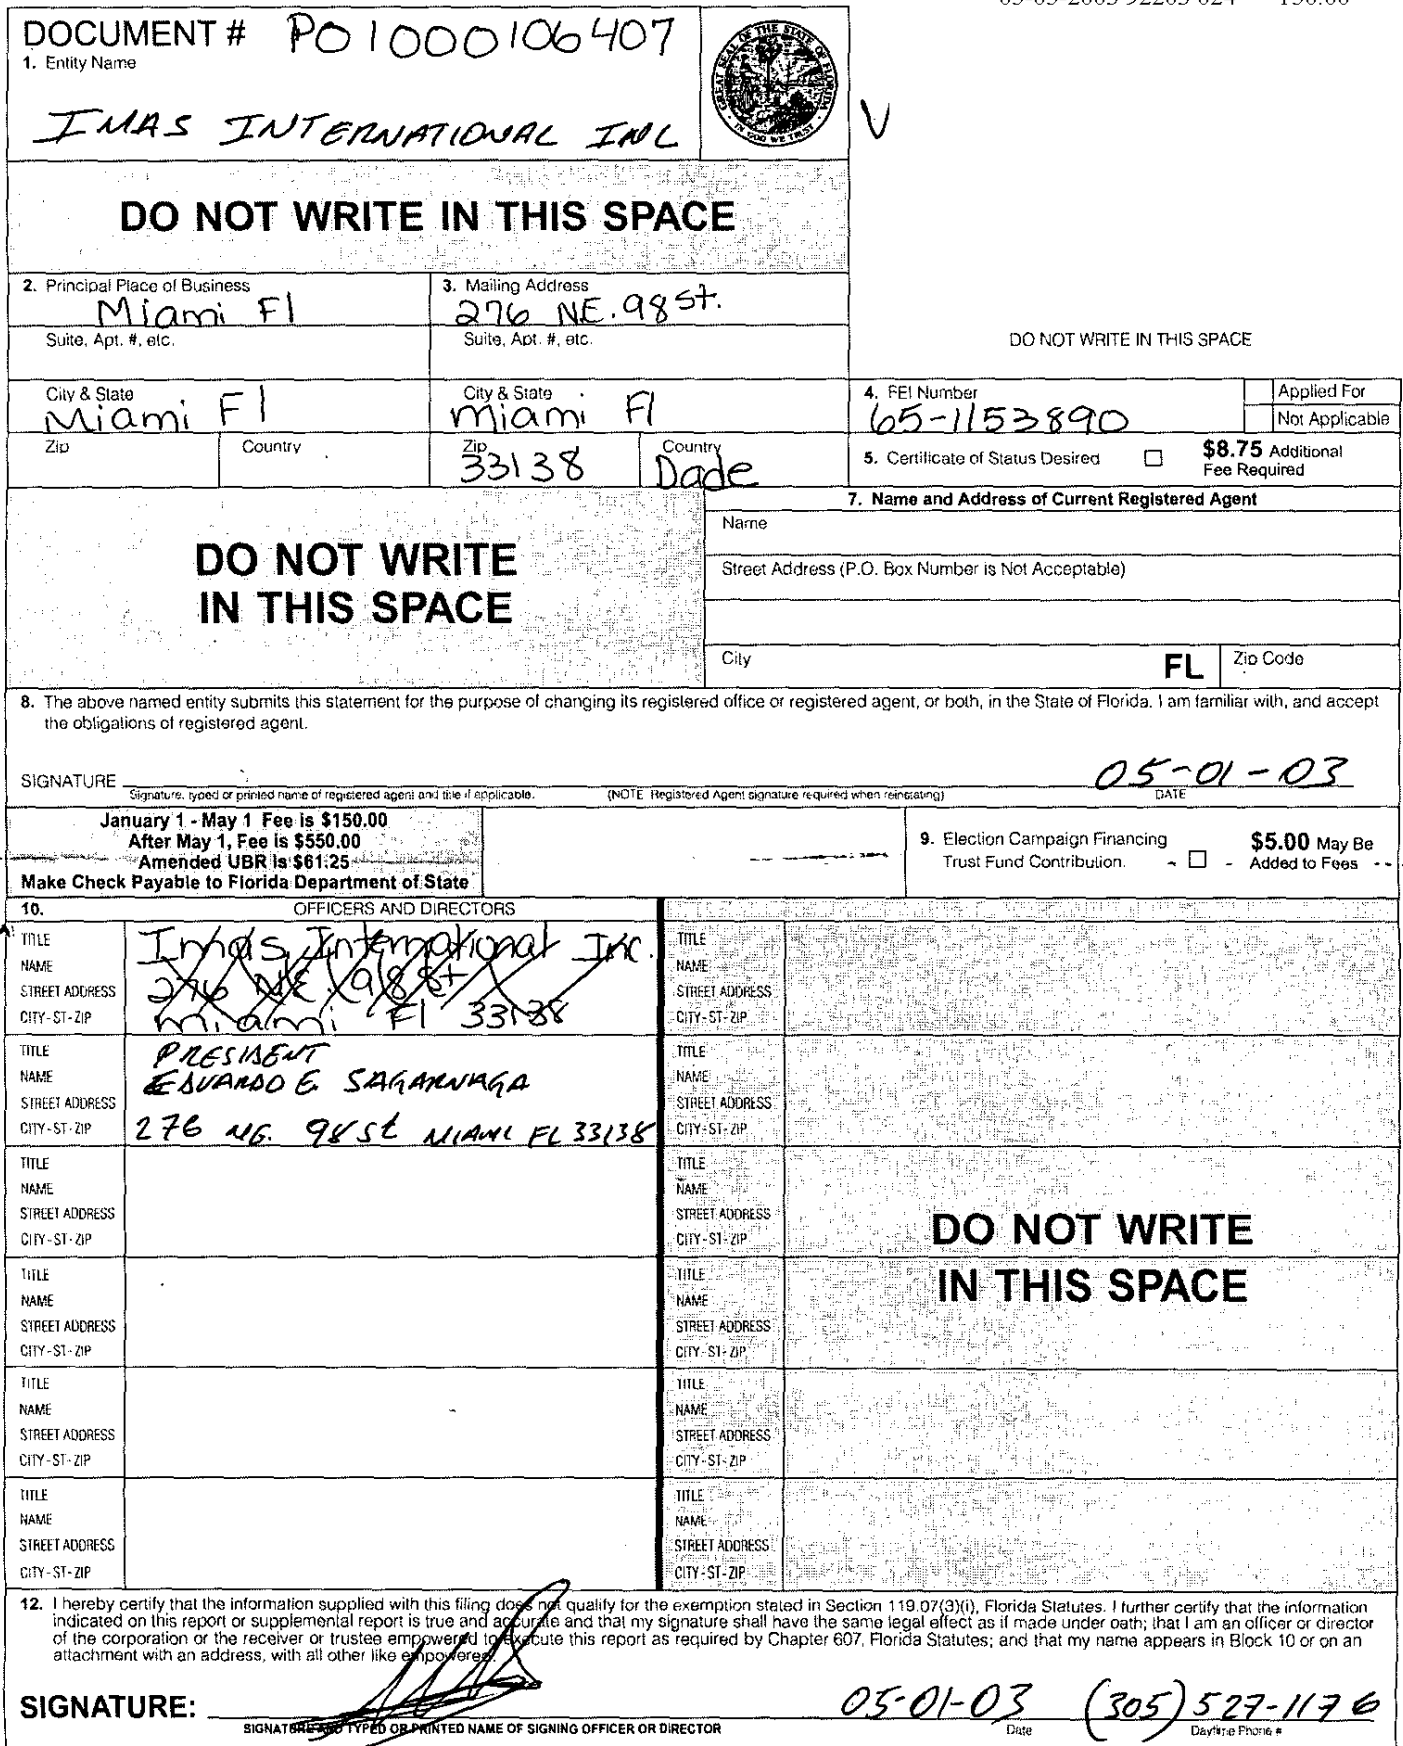 DOCUMENT # P01000106407
1. Entity Name
IMAS INTERNATIONAL INC
GREAT SEAL OF THE STATE OF FLORIDA
IN GOD WE TRUST
V
DO NOT WRITE IN THIS SPACE
2. Principal Place of Business
Miami Fl
3. Mailing Address
276 NE. 98 St.
Suite, Apt. #, etc.
Suite, Apt. #, etc.
DO NOT WRITE IN THIS SPACE
City & State
Miami Fl
City & State
Miami Fl
4. FEI Number
65-1153890
Applied For
Not Applicable
Zip
Country
Zip
33138
Country
Dade
5. Certificate of Status Desired
$8.75 Additional
Fee Required
DO NOT WRITE
IN THIS SPACE
7. Name and Address of Current Registered Agent
Name
Street Address (P.O. Box Number is Not Acceptable)
City
FL
Zip Code
8. The above named entity submits this statement for the purpose of changing its registered office or registered agent, or both, in the State of Florida. I am familiar with, and accept
the obligations of registered agent.
SIGNATURE
05-01-03
Signature, typed or printed name of registered agent and title if applicable.
(NOTE Registered Agent signature required when reinstating)
DATE
January 1 - May 1 Fee is $150.00
After May 1, Fee is $550.00
Amended UBR is $61.25
Make Check Payable to Florida Department of State
9. Election Campaign Financing
Trust Fund Contribution.
$5.00 May Be
Added to Fees
10.
OFFICERS AND DIRECTORS
TITLE
NAME
STREET ADDRESS
CITY-ST-ZIP
Imas International Inc.
276 NE 98 St
Miami Fl 33138
TITLE
NAME
STREET ADDRESS
CITY-ST-ZIP
TITLE
NAME
STREET ADDRESS
CITY-ST-ZIP
PRESIDENT
EDUARDO E SAGARNAGA
276 NE. 98 St MIAMI FL 33138
TITLE
NAME
STREET ADDRESS
CITY-ST-ZIP
TITLE
NAME
STREET ADDRESS
CITY-ST-ZIP
TITLE
NAME
STREET ADDRESS
CITY-ST-ZIP
DO NOT WRITE
IN THIS SPACE
TITLE
NAME
STREET ADDRESS
CITY-ST-ZIP
TITLE
NAME
STREET ADDRESS
CITY-ST-ZIP
TITLE
NAME
STREET ADDRESS
CITY-ST-ZIP
TITLE
NAME
STREET ADDRESS
CITY-ST-ZIP
TITLE
NAME
STREET ADDRESS
CITY-ST-ZIP
TITLE
NAME
STREET ADDRESS
CITY-ST-ZIP
12. I hereby certify that the information supplied with this filing does not qualify for the exemption stated in Section 119.07(3)(i), Florida Statutes. I further certify that the information
indicated on this report or supplemental report is true and accurate and that my signature shall have the same legal effect as if made under oath; that I am an officer or director
of the corporation or the receiver or trustee empowered to execute this report as required by Chapter 607, Florida Statutes; and that my name appears in Block 10 or on an
attachment with an address, with all other like empowered.
SIGNATURE:
05-01-03
(305) 527-1176
SIGNATURE AND TYPED OR PRINTED NAME OF SIGNING OFFICER OR DIRECTOR
Date
Daytime Phone #